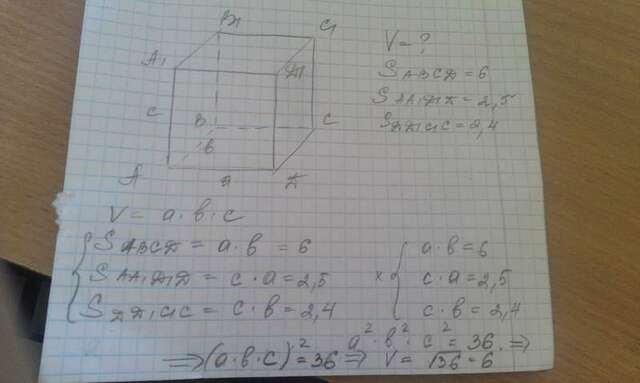 B₁ C₁
A₁ Д₁
c
B C
в
A a Д
V = ?
S ABCД = 6
S AA₁Д₁Д = 2,5
S ДД₁C₁C = 2,4
V = a · в · c
{ S ABCД = a · в = 6
S AA₁Д₁Д = c · a = 2,5
S ДД₁C₁C = c · в = 2,4
× { a · в = 6
c · a = 2,5
c · в = 2,4
a² · в² · c² = 36 ⇒
⇒ (a · в · c)² = 36 ⇒ V = √36 = 6